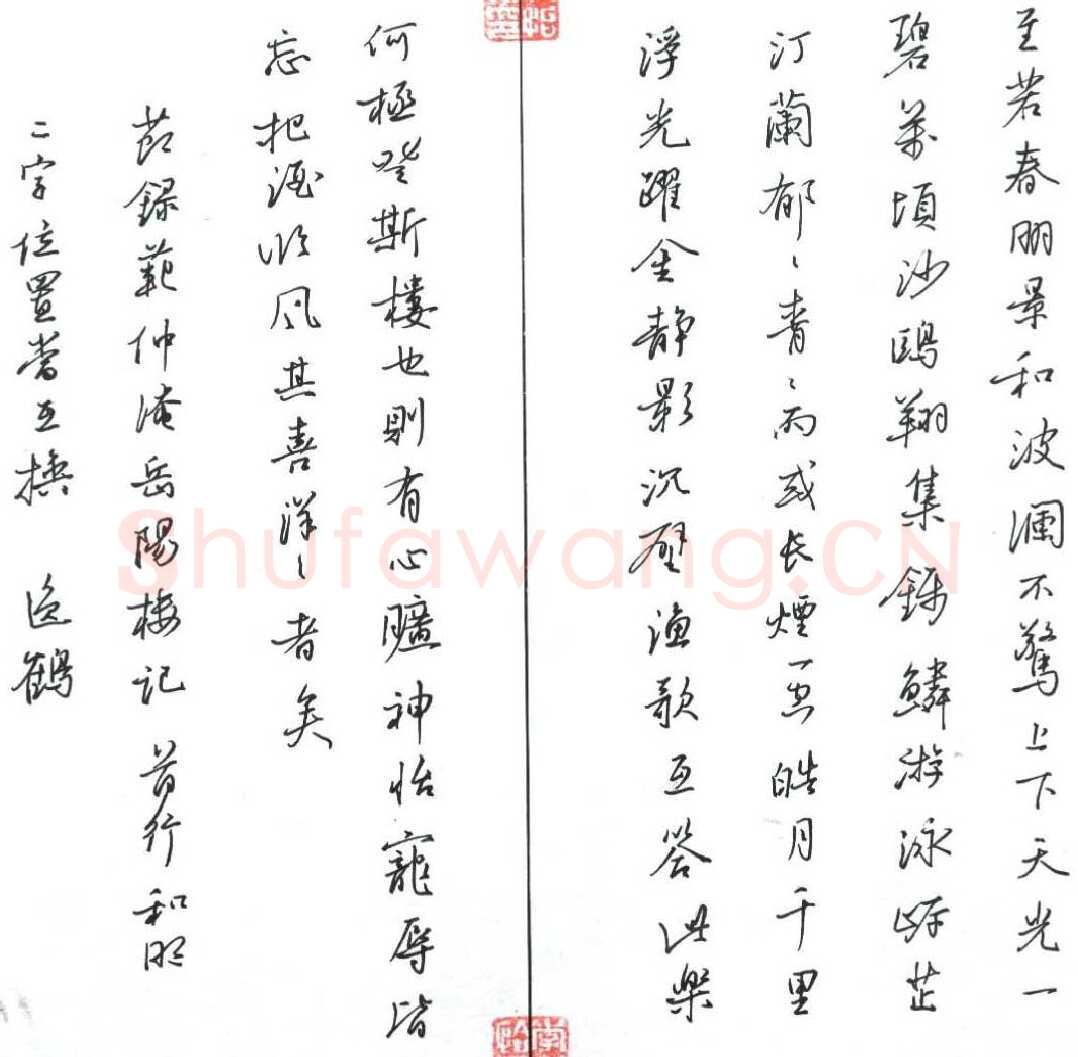 至若春明景和波瀾不驚上下天光一
碧萬頃沙鷗翔集錦鱗游泳岸芷
汀蘭郁〻青〻而或长煙一空皓月千里
浮光躍金静影沉璧漁歌互答此樂
何極登斯樓也則有心曠神怡寵辱皆
忘把酒临風其喜洋〻者矣
節錄範仲淹岳陽樓記 首行和明
二字位置當互換 逸鶴
Shufawang.CN